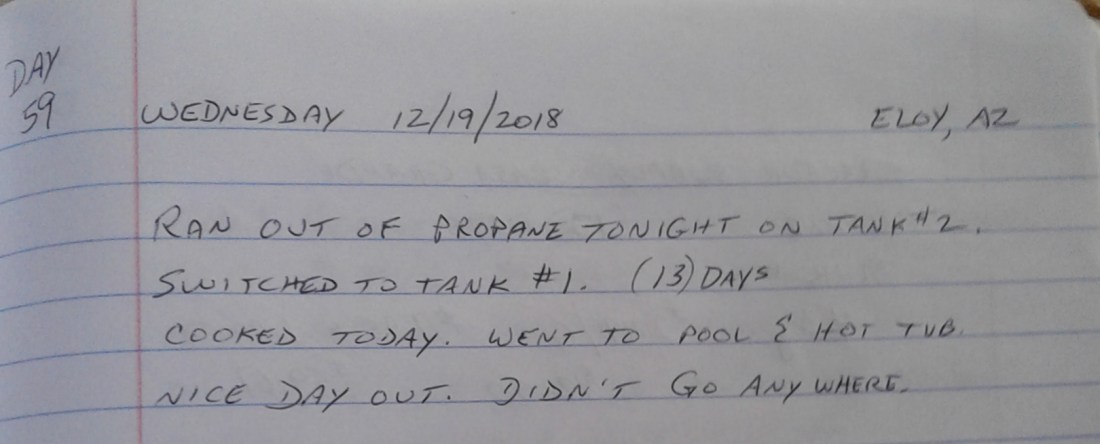 DAY
59
WEDNESDAY 12/19/2018 ELOY, AZ
RAN OUT OF PROPANE TONIGHT ON TANK #2.
SWITCHED TO TANK #1. (13) DAYS
COOKED TODAY. WENT TO POOL & HOT TUB.
NICE DAY OUT. DIDN'T GO ANYWHERE.